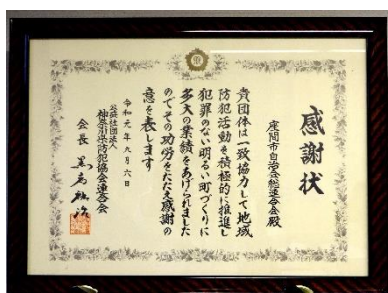 感謝状
座間市自治会総連合会殿
貴団体は一致協力して地域
防犯活動を積極的に推進し
犯罪のない明るい町づくりに
多大の業績をあげられました
のでその功労をたたえ感謝の
意を表します
令和元年九月六日
公益社団法人
神奈川県防犯協会連合会
会長